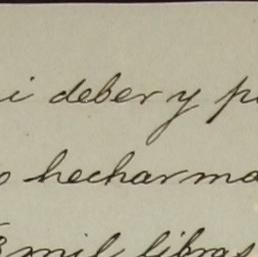 i deber y p
hecharma
mil libras